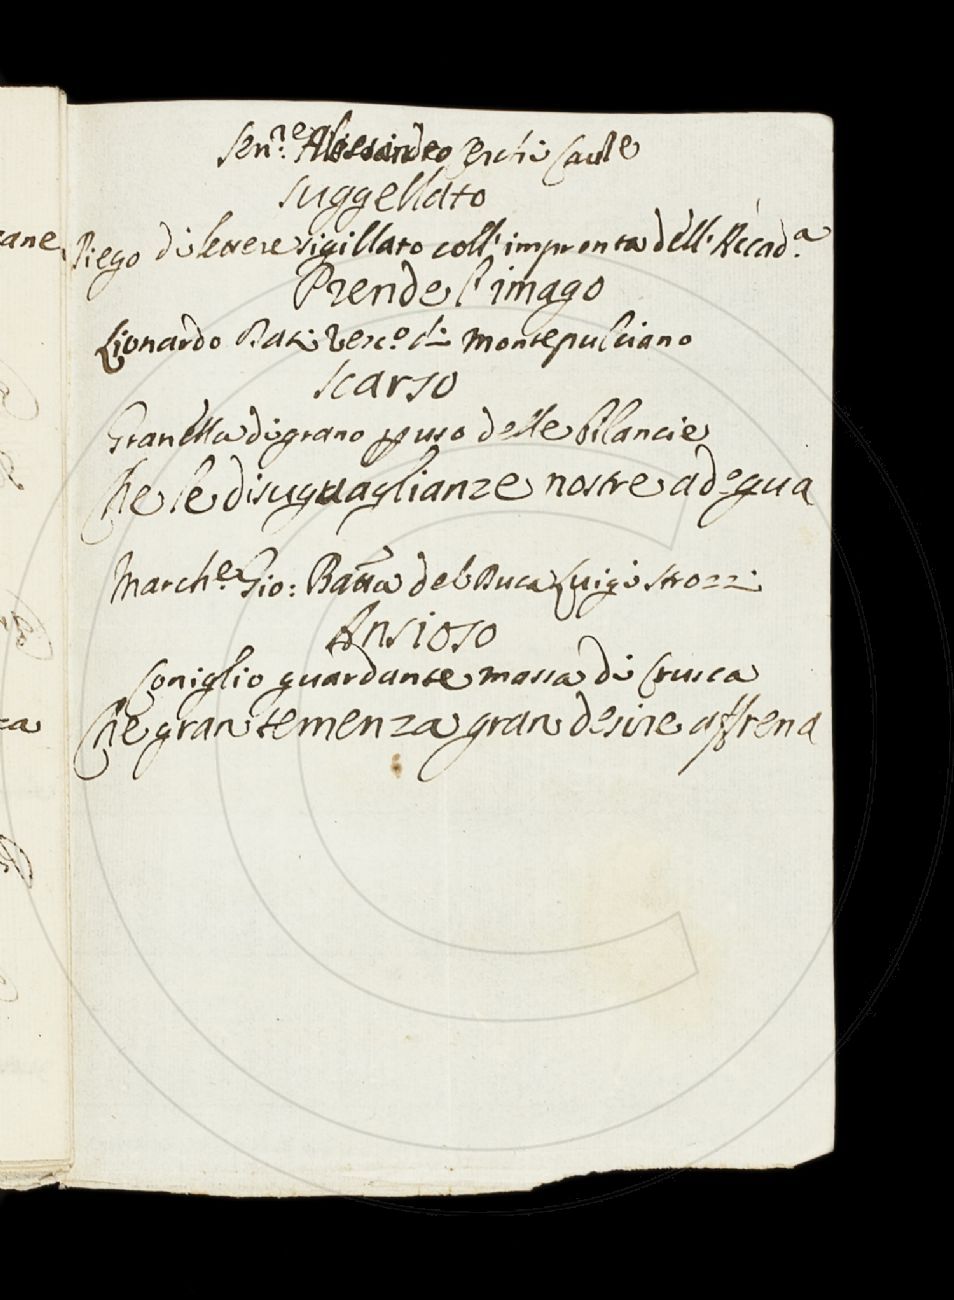 Sen.re Alessandro Cerchi Cav.re
Suggellato
Piego di lettere sigillato coll' impronta dell' Accad.a
Prende l' imago
Lionardo Dati Vesc.o di Montepulciano
Scarso
Granella di grano p uso delle bilancie
Che le disuguaglianze nostre adegua
March.e Gio: Batta del Luigi Strozzi
Ansioso
Coniglio guardante massa di Crusca
Che gran temenza gran desire affrena